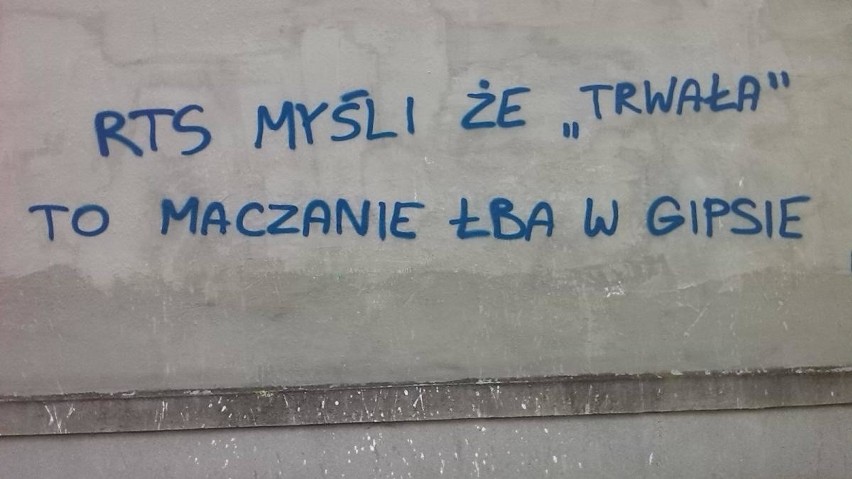 RTS MYŚLI ŻE „TRWAŁA”
TO MACZANIE ŁBA W GIPSIE